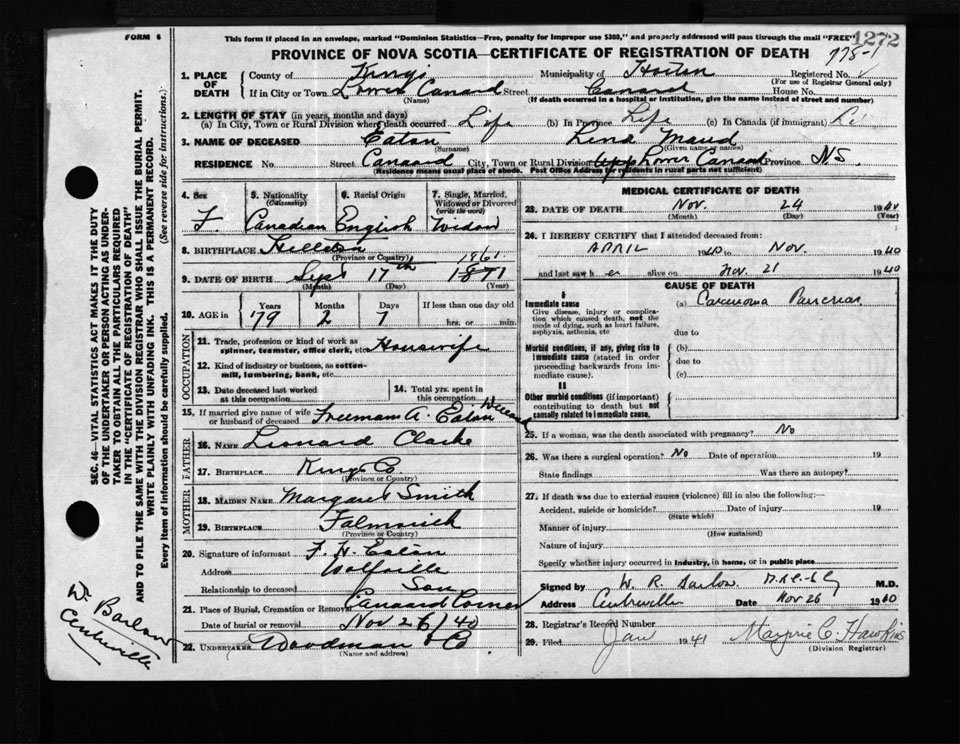 FORM 6
This form if placed in an envelope, marked "Dominion Statistics—Free, penalty for improper use $300," and properly addressed will pass through the mail "FREE"
1272
PROVINCE OF NOVA SCOTIA—CERTIFICATE OF REGISTRATION OF DEATH
775-1
1. PLACE OF DEATH
County of Kings Municipality of Horton Registered No.
(For use of Registrar General only)
If in City or Town Lower Canard Street Canard House No.
(Name) (If death occurred in a hospital or institution, give the name instead of street and number)
2. LENGTH OF STAY (in years, months and days)
(a) In City, Town or Rural Division where death occurred Life (b) In Province Life (c) In Canada (if immigrant)
3. NAME OF DECEASED Eaton Lena Maud
(Surname) (Given name or names)
RESIDENCE No. Street Canaard City, Town or Rural Division Lower Canard Province N.S.
(Residence means usual place of abode. Post Office Address for residents in rural parts not sufficient)
4. Sex F.
5. Nationality (Citizenship) Canadian
6. Racial Origin English
7. Single, Married, Widowed or Divorced (write the word) Widow
8. BIRTHPLACE
(Province or Country)
1861
9. DATE OF BIRTH Sept 17th 1871
(Month) (Day) (Year)
10. AGE in
Years Months Days If less than one day old
79 2 7 hrs. or min.
OCCUPATION
11. Trade, profession or kind of work as spinner, teamster, office clerk, etc. Housewife
12. Kind of industry or business, as cotton-mill, lumbering, bank, etc.
13. Date deceased last worked at this occupation
14. Total yrs. spent in this occupation
15. If married give name of wife or husband of deceased Freeman A. Eaton
FATHER
16. NAME Leonard Clarke
17. BIRTHPLACE Kings Co.
(Province or Country)
MOTHER
18. MAIDEN NAME Margaret Smith
19. BIRTHPLACE
(Province or Country)
20. Signature of informant F. H. Eaton
Address Wolfville
Relationship to deceased Son
21. Place of Burial, Cremation or Removal Canaard Corner
Date of burial or removal Nov 26/40
22. UNDERTAKER Woodman & Co
(Name and address)
MEDICAL CERTIFICATE OF DEATH
23. DATE OF DEATH Nov. 24 1940
(Month) (Day) (Year)
24. I HEREBY CERTIFY that I attended deceased from:
APRIL 1940 to Nov. 1940
and last saw her alive on Nov. 21 1940
CAUSE OF DEATH
I
Immediate cause
Give disease, injury or complication which caused death, not the mode of dying, such as heart failure, asphyxia, asthenia, etc
(a) Carcinoma Pancreas
due to
Morbid conditions, if any, giving rise to immediate cause (stated in order proceeding backwards from immediate cause).
(b)
due to
(c)
II
Other morbid conditions (if important) contributing to death but not causally related to immediate cause.
25. If a woman, was the death associated with pregnancy? No
26. Was there a surgical operation? No Date of operation 19
State findings Was there an autopsy?
27. If death was due to external causes (violence) fill in also the following:—
Accident, suicide or homicide? Date of injury 19
(State which)
Manner of injury
(How sustained)
Nature of injury
Specify whether injury occurred in industry, in home, or in public place
Signed by W. R. Barlow M.D.
Address Centreville Date Nov 26 1940
28. Registrar's Record Number
29. Filed Jan 1941 Marjorie C. Hawkins
(Division Registrar)
SEC. 46—VITAL STATISTICS ACT MAKES IT THE DUTY OF THE UNDERTAKER OR PERSON ACTING AS UNDERTAKER TO OBTAIN ALL THE PARTICULARS REQUIRED IN THE "CERTIFICATE OF REGISTRATION OF DEATH" AND TO FILE THE SAME WITH THE DIVISION REGISTRAR WHO SHALL ISSUE THE BURIAL PERMIT.
WRITE PLAINLY WITH UNFADING INK. THIS IS A PERMANENT RECORD.
Every item of information should be carefully supplied. (See reverse side for instructions.)
Dr Barlow
Centreville